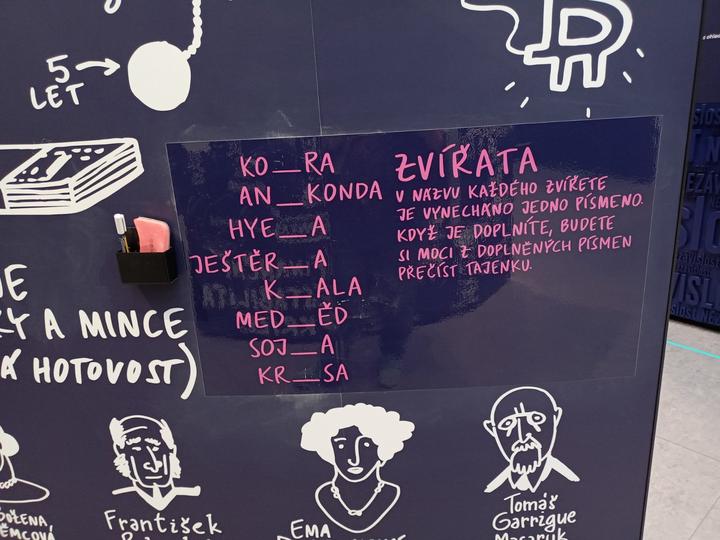 5
LET
KO__RA
AN__KONDA
HYE__A
JEŠTĚR__A
K__ALA
MED__ĚD
SOJ__A
KR__SA
ZVÍŘATA
V NÁZVU KAŽDÉHO ZVÍŘETE
JE VYNECHÁNO JEDNO PÍSMENO.
KDYŽ JE DOPLNÍTE, BUDETE
SI MOCI Z DOPLNĚNÝCH PÍSMEN
PŘEČÍST TAJENKU.
JE
KY A MINCE
Á HOTOVOST)
František
EMA
Tomáš
Garrigue
Masaryk